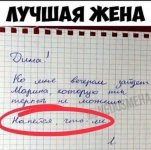 ЛУЧШАЯ ЖЕНА
Дима!
Ко мне вечером зайдет
Марина, которую ты
терпеть не можешь.
Напейся, что-ли.
Л